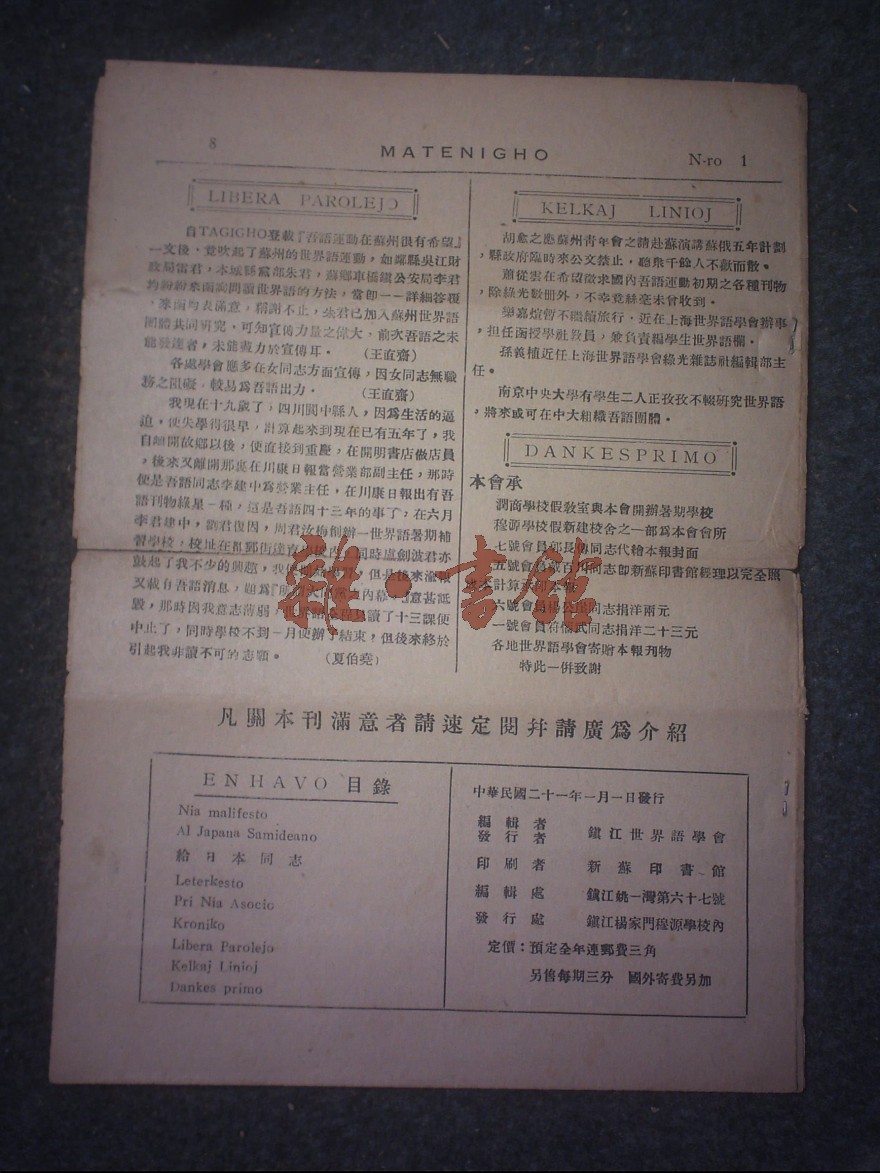 8
MATENIGHO
N-ro 1
LIBERA PAROLEJO
自TAGIGHO登載『吾語運動在蘇州很有希望』
一文後，竟吹起了蘇州的世界語運動，如鄰縣吳江財
政局雷君，本城縣黨部朱君，蘇鄉車橋鎮公安局李君
均紛紛來函詢問讀世界語的方法，當即一一詳細答覆
，來函均表滿意，稱謝不止，朱君已加入蘇州世界語
團體共同研究，可知宣傳力量之偉大，前次吾語之未
能發達者，未能盡力於宣傳耳。 (王直齋)
各處學會應多在女同志方面宣傳，因女同志無職
務之阻礙，較易爲吾語出力。 (王直齋)
我現在十九歲了，四川閬中縣人，因爲生活的逼
迫，使失學得很早，計算起來到現在已有五年了，我
自離開故鄉以後，便直接到重慶，在開明書店做店員
，後來又離開那裏在川康日報當營業部副主任，那時
便是吾語同志李建中爲營業主任，在川康日報出有吾
語刊物綠星一種，這是吾語四十三年的事了，在六月
李君建中，劉君復因，周君汝梅創辦一世界語暑期補
習學校，校址在
同時盧劍波君亦
鼓起了我不少的興趣，我
但是後來
又載有吾語消息，題爲『
內幕』，意甚詆
毀，那時因我意志薄弱，
讀了十三課便
中止了，同時學校不到一月便辦了結束，但後來終於
引起我非讀不可的志願。 (夏伯堯)
KELKAJ LINIOJ
胡愈之應蘇州青年會之請赴蘇演講蘇俄五年計劃
，縣政府臨時來公文禁止，聽衆千餘人不歡而散。
蕭從雲在希望徵求國內吾語運動初期之各種刊物
，除綠光數冊外，不幸竟絲毫未曾收到。
樂嘉煊暫不繼續旅行，近在上海世界語學會辦事
，担任函授學社教員，兼負責編學生世界語欄。
孫義植近任上海世界語學會綠光雜誌社編輯部主
任。
南京中央大學有學生二人正孜孜不輟研究世界語
，將來或可在中大組織吾語團體。
DANKESPRIMO
本會承
潤商學校假教室與本會開辦暑期學校
穆源學校假新建校舍之一部爲本會會所
七號會員郭長傳同志代繪本報封面
五號會員
百川同志即新蘇印書館經理以完全照
成本計算
六號會員楊公
同志捐洋兩元
一號會員符惱武同志捐洋二十三元
各地世界語學會寄贈本報刊物
特此一併致謝
凡關本刊滿意者請速定閱幷請廣爲介紹
ENHAVO 目錄
Nia malifesto
Al Japana Samideano
給日本同志
Leterkesto
Pri Nia Asocio
Kroniko
Libera Parolejo
Kelkaj Linioj
Dankes primo
中華民國二十一年一月一日發行
編輯者
發行者 鎮江世界語學會
印刷者 新蘇印書館
編輯處 鎮江姚一灣第六十七號
發行處 鎮江楊家門穆源學校內
定價：預定全年連郵費三角
另售每期三分 國外寄費另加
雜·書館